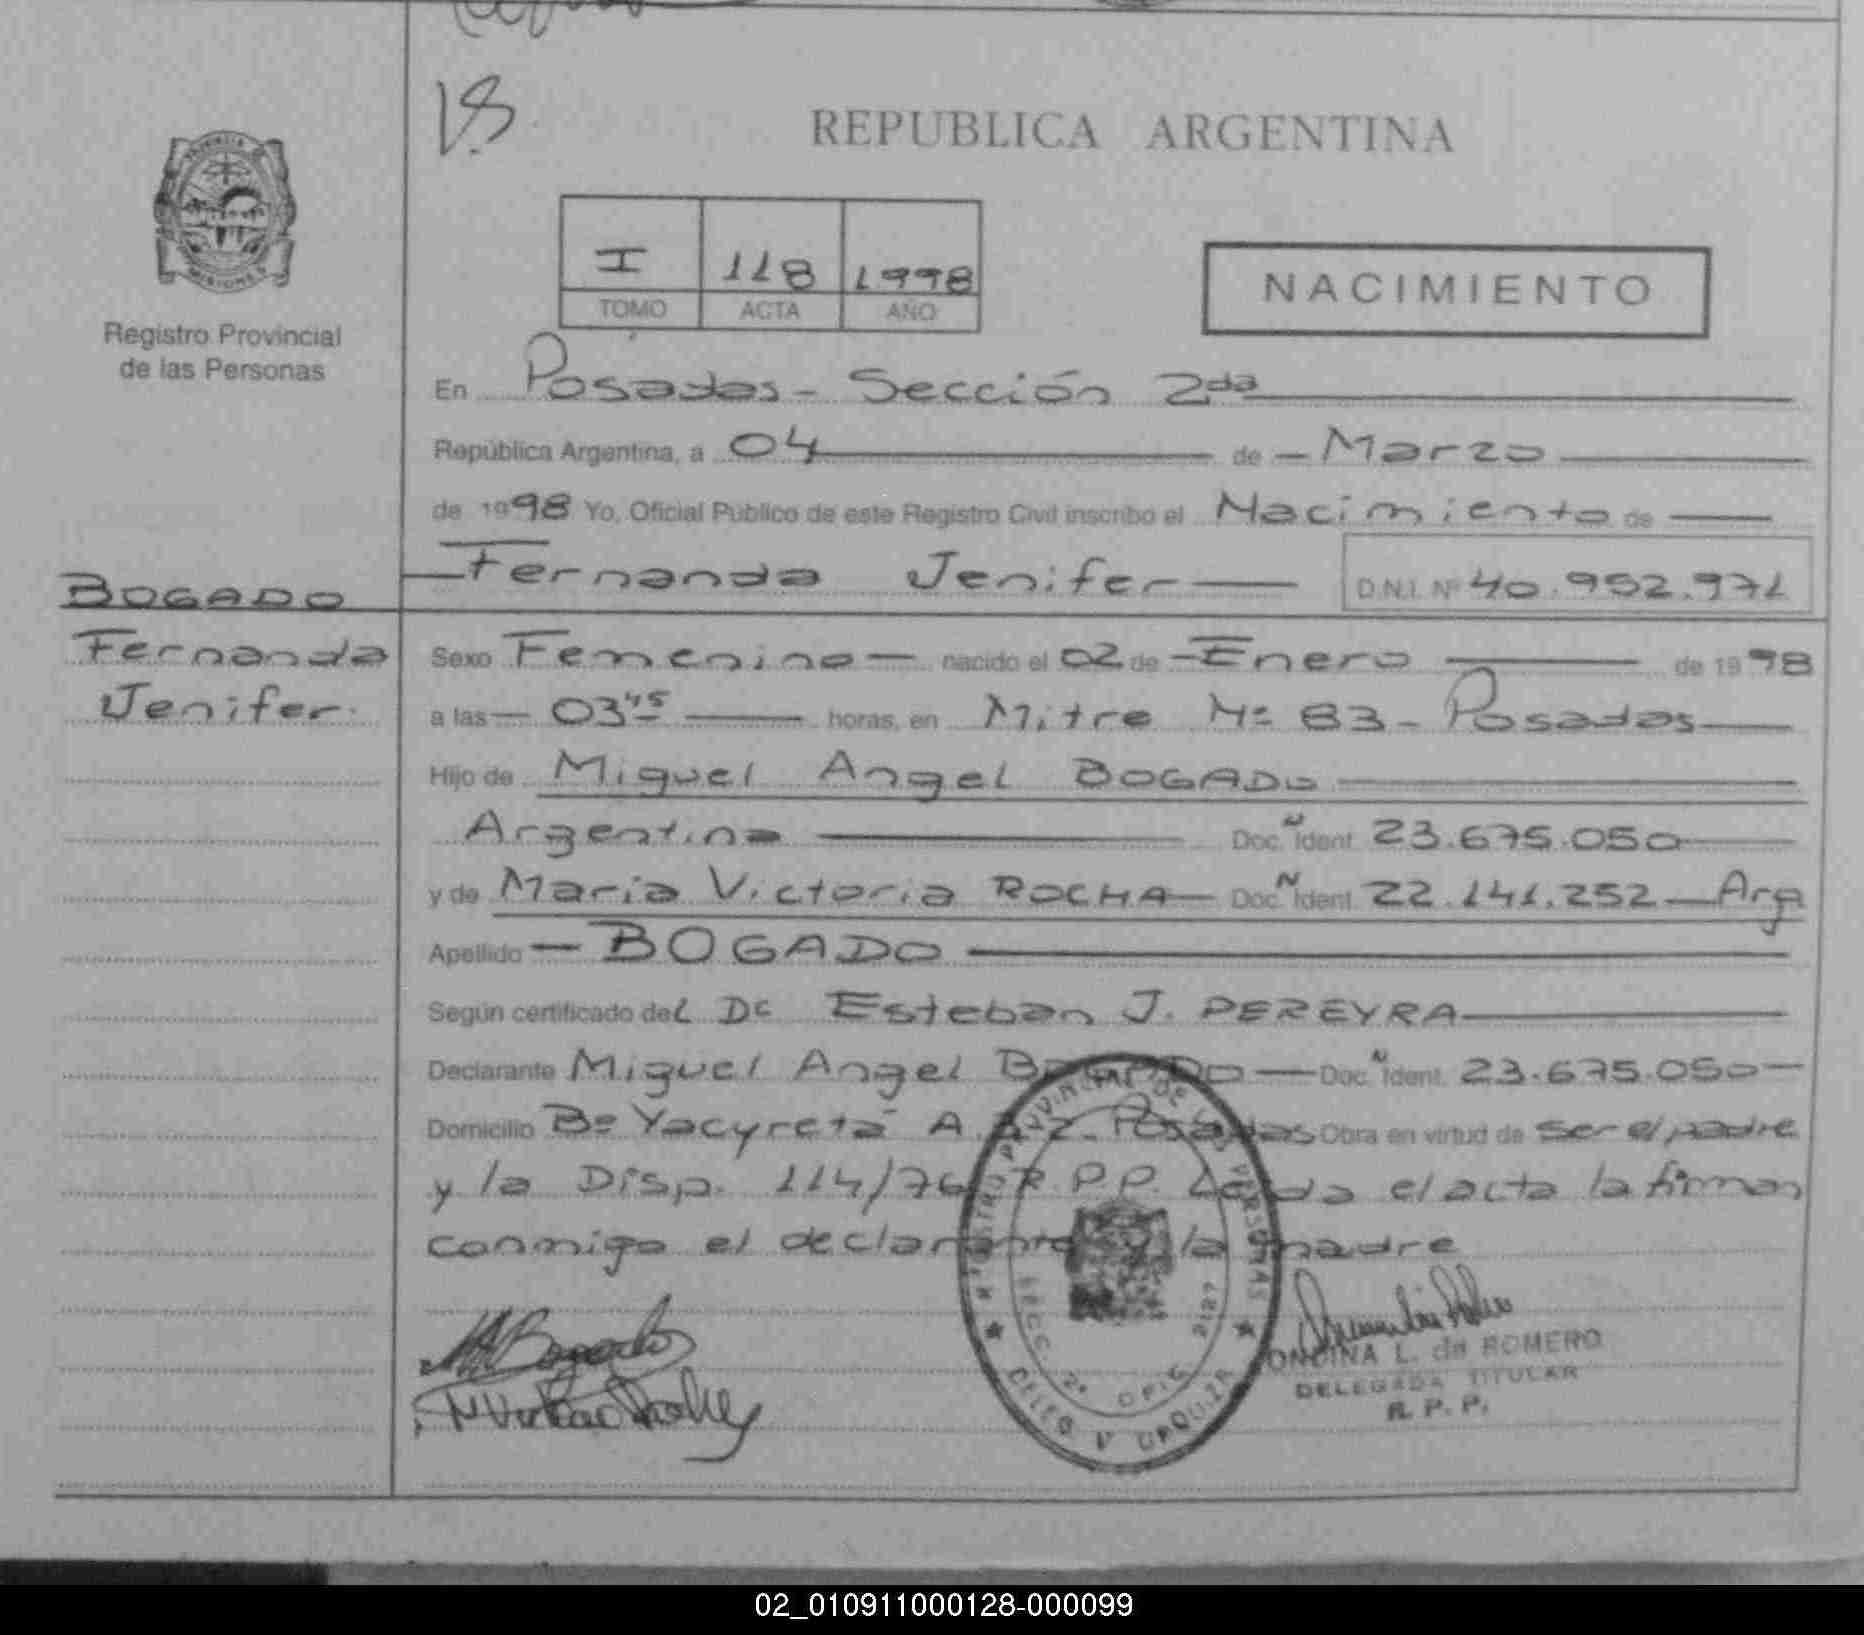 VS
REPUBLICA ARGENTINA
I 118 1998
TOMO ACTA AÑO
NACIMIENTO
PROVINCIA
MISIONES
Registro Provincial
de las Personas
En Posadas - Sección 2da
República Argentina, a 04 de - Marzo
de 1998 Yo, Oficial Público de este Registro Civil inscribo el Nacimiento de
Fernanda Jenifer D.N.I. Nº 40.952.971
BOGADO
Fernanda
Jenifer.
Sexo Femenino - nacido el 02 de - Enero de 1998
a las - 03 45 horas, en Mitre Nº 83 - Posadas
Hijo de Miguel Angel BOGADO
Argentina Doc. N Ident. 23.675.050
y de María Victoria ROCHA - Doc. N Ident. 22.141.252 - Arg
Apellido - BOGADO
Según certificado del Dr Esteban J. PEREYRA
Declarante Miguel Angel BOGADO - Doc. N Ident. 23.675.050 -
Domicilio Bº Yacyretá A. Posadas Obra en virtud de ser el padre
y la Disp. 114/76 R.P.P. Leída el acta la firman
conmigo el declarante y la madre
REGISTRO PROVINCIAL DE LAS PERSONAS
SECC. 2º OFIC.
DELEG. V URQUIZA
MABogado
MVictoria Rocha
ONDINA L. de ROMERO
DELEGADA TITULAR
R. P. P.
02_010911000128-000099